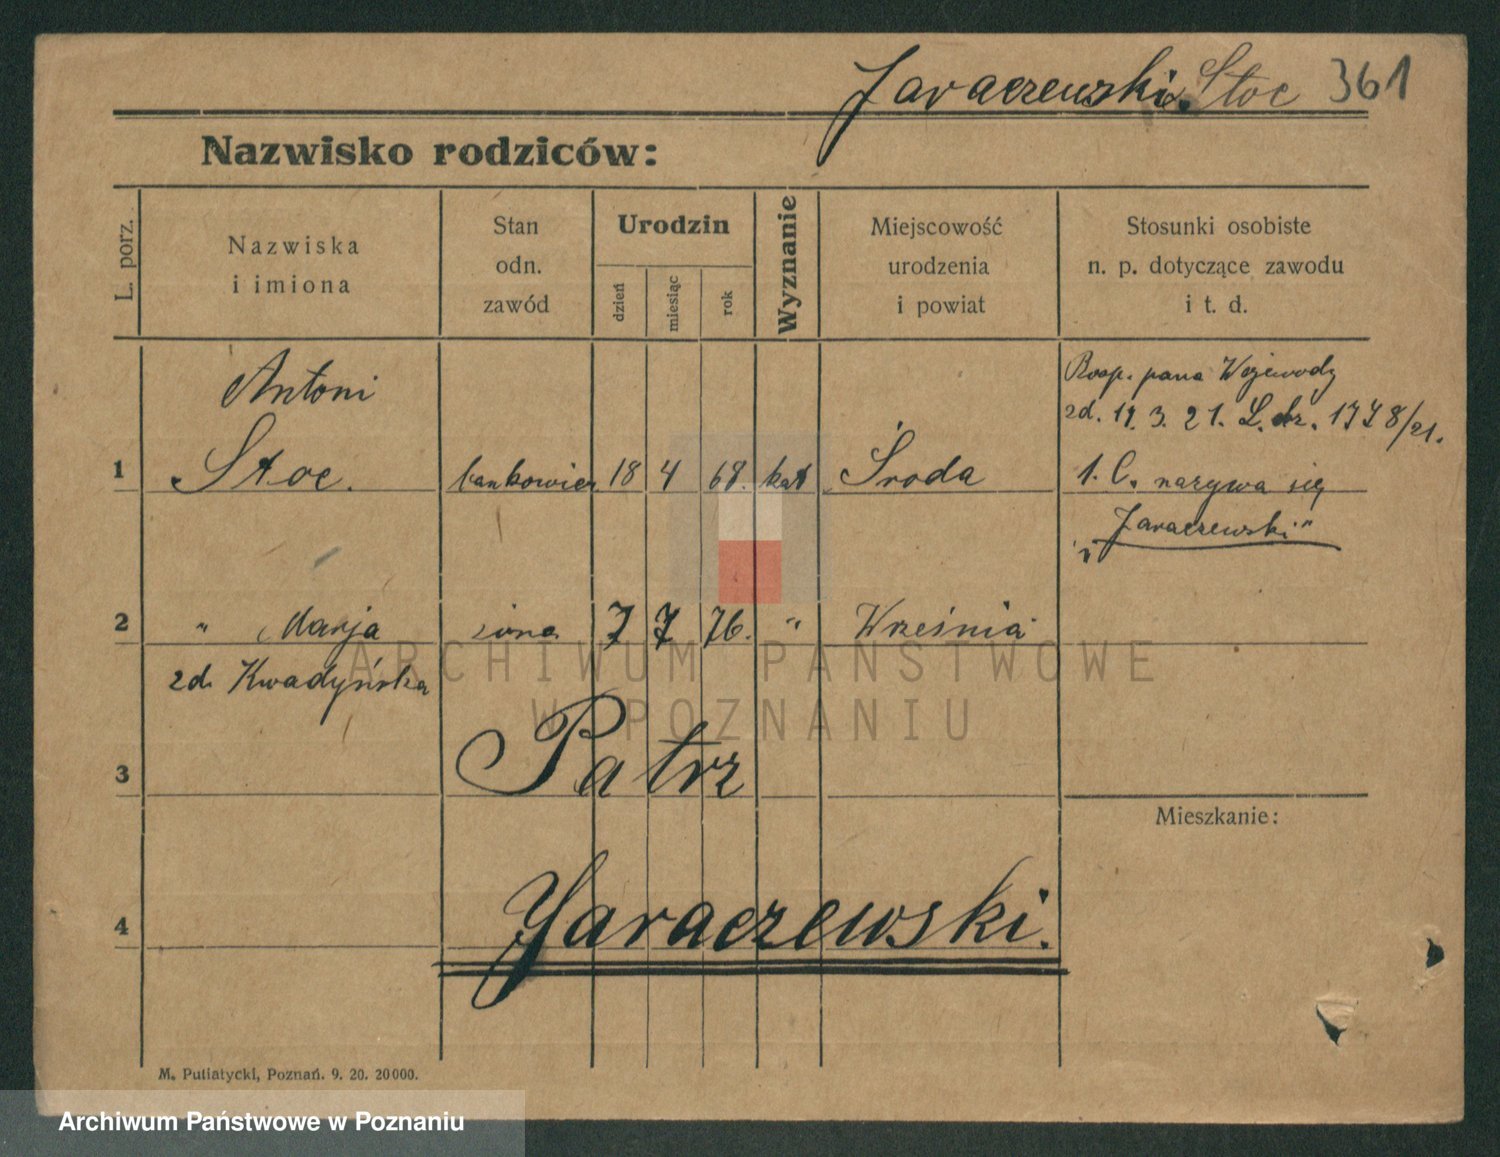 Jaraczewski. Stoc 361
Nazwisko rodziców:
L. porz.
Nazwiska
i imiona
Stan
odn.
zawód
Urodzin
dzień
miesiąc
rok
Wyznanie
Miejscowość
urodzenia
i powiat
Stosunki osobiste
n. p. dotyczące zawodu
i t. d.
Antoni
1 Stoc. bankowiec 18 4 68. kat Środa
Rosp. pana Wojewody
zd. 19. 3. 21. L. dz. 1778/21.
1. C. nazywa się
„Jaraczewski"
2 " Marja żona 7 7 76. " Września
zd. Kwadyńska
3 Patrz
Mieszkanie:
4 Jaraczewski.
M. Putiatycki, Poznań. 9. 20. 20000.
ARCHIWUM PAŃSTWOWE
W POZNANIU
Archiwum Państwowe w Poznaniu